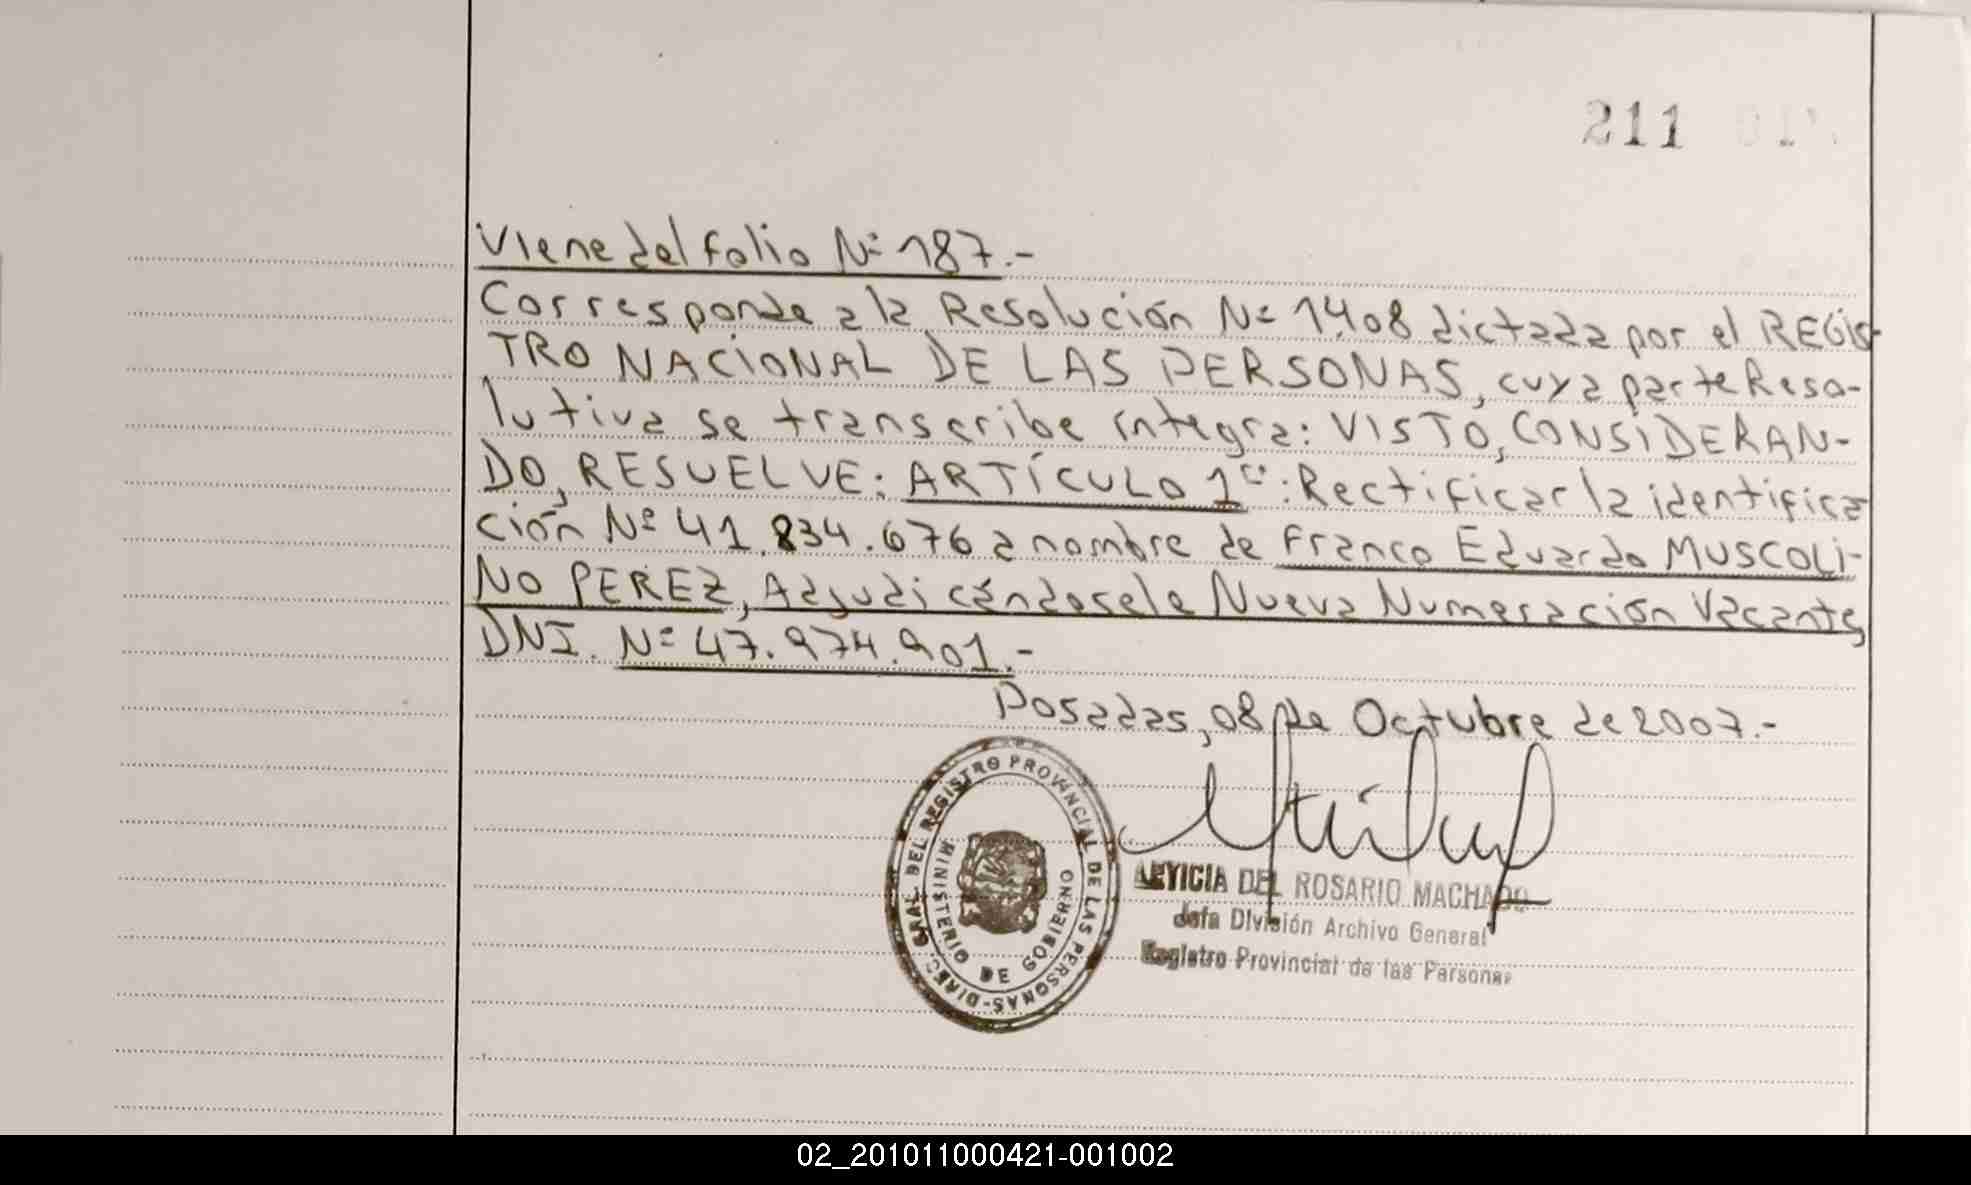 211
Viene del folio Nº 187.-
Corresponde a la Resolución Nº 1408 dictada por el REGIS-
TRO NACIONAL DE LAS PERSONAS, cuya parte Reso-
lutiva se transcribe íntegra: VISTO, CONSIDERAN-
DO, RESUELVE: ARTÍCULO 1º: Rectificar la identifica
ción Nº 41.834.676 a nombre de Franco Eduardo MUSCOLI-
NO PEREZ, Adjudicándosele Nueva Numeración Vacante,
DNI. Nº 47.974.901.-
Posadas, 08 de Octubre de 2007.-
DIREC. GRAL. DEL REGISTRO PROVINCIAL DE LAS PERSONAS-
MINISTERIO DE GOBIERNO
LEYICIA DEL ROSARIO MACHADO
Jefa División Archivo General
Registro Provincial de las Personas
02_201011000421-001002